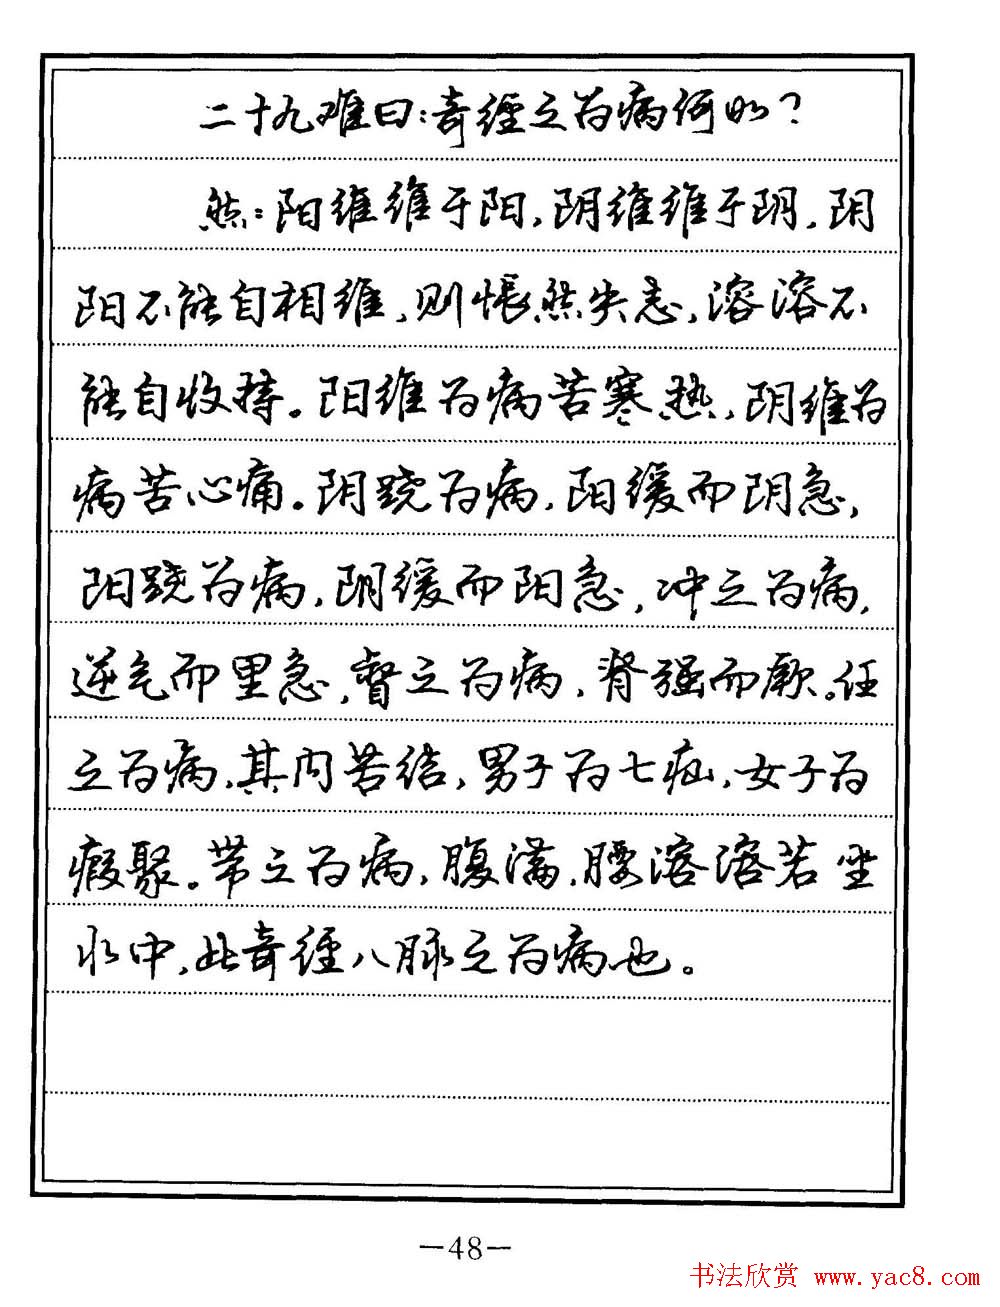 二十九难曰:奇经之为病何如?
然:阳维维于阳,阴维维于阴,阴
阳不能自相维,则怅然失志,溶溶不
能自收持。阳维为病苦寒热,阴维为
病苦心痛。阴跷为病,阳缓而阴急,
阳跷为病,阴缓而阳急,冲之为病,
逆气而里急,督之为病,脊强而厥。任
之为病,其内苦结,男子为七疝,女子为
瘕聚。带之为病,腹满,腰溶溶若坐
水中,此奇经八脉之为病也。
—48—
书法欣赏 www.yac8.com